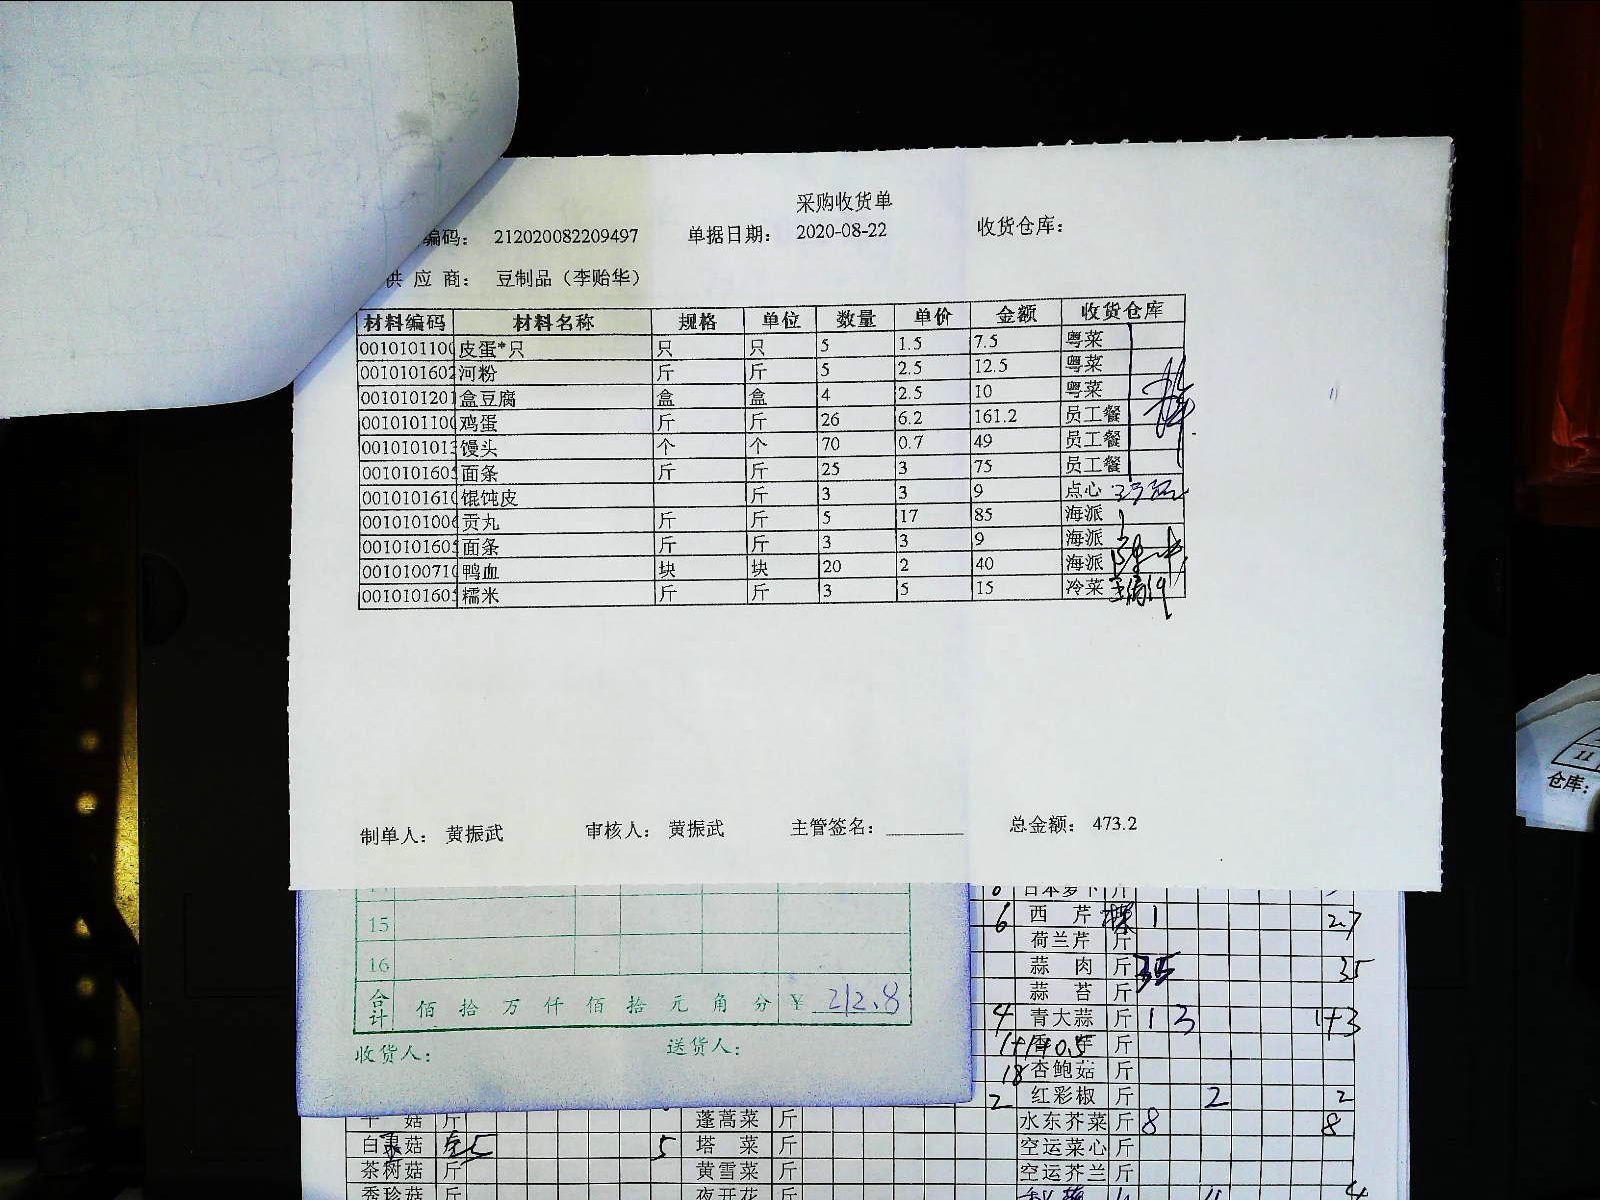 采购收货单
编码： 212020082209497 单据日期： 2020-08-22 收货仓库：
供 应 商： 豆制品（李贻华）
材料编码 材料名称 规格 单位 数量 单价 金额 收货仓库
0010101100 皮蛋*只 只 只 5 1.5 7.5 粤菜
0010101602 河粉 斤 斤 5 2.5 12.5 粤菜
0010101201 盒豆腐 盒 盒 4 2.5 10 粤菜
0010101100 鸡蛋 斤 斤 26 6.2 161.2 员工餐
001010101 馒头 个 个 70 0.7 49 员工餐
001010160 面条 斤 斤 25 3 75 员工餐
0010101610 馄饨皮 斤 3 3 9 点心
001010100 贡丸 斤 斤 5 17 85 海派
001010160 面条 斤 斤 3 3 9 海派
001010071 鸭血 块 块 20 2 40 海派
001010160 糯米 斤 斤 3 5 15 冷菜
制单人： 黄振武 审核人： 黄振武 主管签名： 总金额： 473.2
15
16
合计 佰 拾 万 仟 佰 拾 元 角 分 ￥ 212.8
收货人： 送货人：
日本萝卜 斤
6 西 芹 1 27
荷兰芹 斤
蒜 肉 斤 35 35
蒜 苔 斤
4 青大蒜 斤 1 3 1+3
斤
18 杏鲍菇 斤
2 红彩椒 斤 2 2
水东芥菜 斤 8 8
空运菜心 斤
空运芥兰 斤
菇 斤 蓬蒿菜 斤
白灵菇 5 5 塔 菜 斤
茶树菇 斤 黄雪菜 斤
秀珍菇 斤 夜开花 斤
11
仓库：